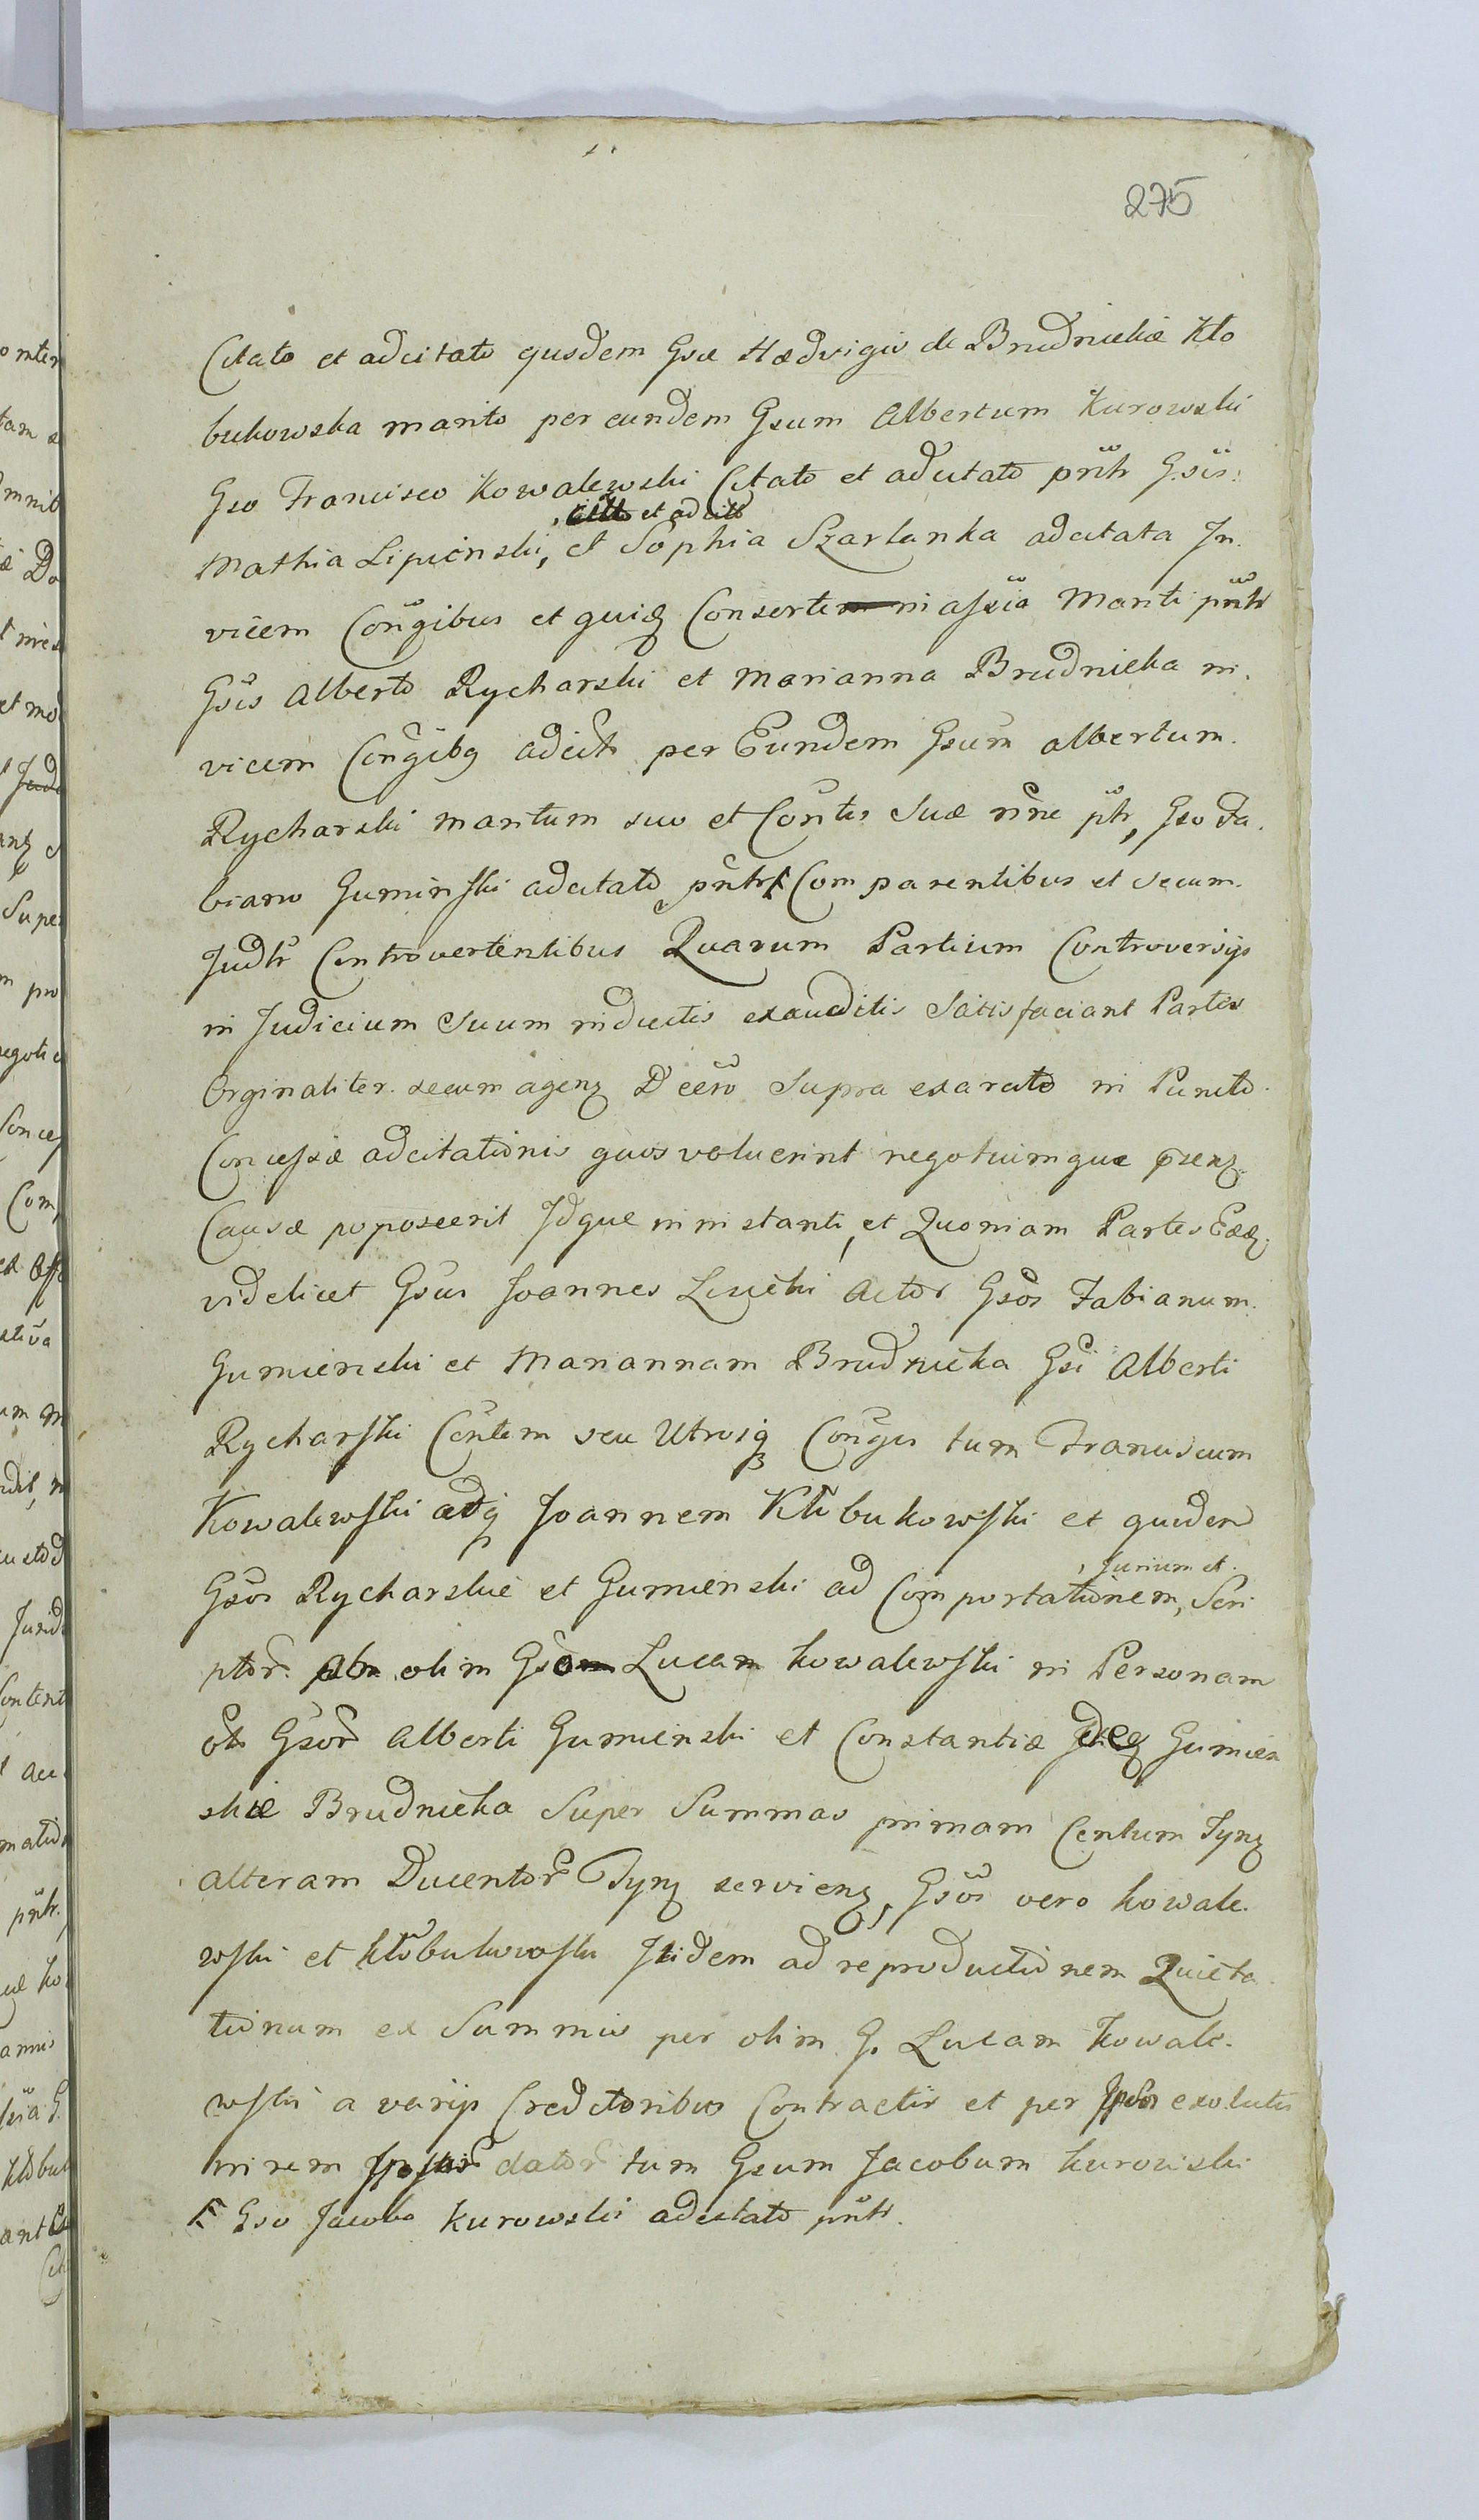 275
Citato et adcitato ejusdem Gsæ Hædvigis de Brudnickie Kło
bukowska marito per eundem Gsum Albertum Kurowski
Gso Francisco Kowalewski Citato et adcitato pñtr Gsis:
citto et adcitto
Mathia Lipienski, et Sophia Szarlanka adcitata In
vicem Coñgibus et quidz Conserte in assia Mariti pñtr
Gsis Alberto Rycharski et Marianna Brudnicka in
vicem Coñgibq adcit per Eundem Gsum Albertum
Rycharski maritum suo et Coñtis Suæ nñe ptr, Gso Fa
biano Guminski adcitato pñtr Comparentibus et secum
Judtr Controvertentibus Quarum Partium Controversijs
in Judicium Suum inductis exauditis Satisfaciant Partes
Orginaliter secum agenz Dcero Supra exarato in Puncto
Concessæ adcitationis quos voluerint negotiumque præsenz
Causæ poposcerit Idque in instanti, et Quoniam Partes Eædz
videlicet Gsus Joannes Lencki Actor Gsos Fabianum
Gumienski et Mariannam Brudnicka Gsi Alberti
Rycharski Coñtem seu Utrosqz Coñges tum Franciscum
Kowalewski adq Joannem Kłobukowski et quidem
Jurium et
Gsos Rycharskie et Gumienski ad Comportationem, Scri
ptor ab olim Gso Lucam Kowalewski in Personam
ol Gsor Alberti Gumienski et Constantiæ Gumien
skie Brudnicka Super Summas primam Centum Tynz
alteram Ducentor Tynz servienz, Gsos vero Kowale
wski et Kłobukowski Itidem ad reproductionem Quieta
tionum ex Summis per olim G. Lucam Kowale
wski a varijs Creditoribus Contractis et per Ipsos exolutis
in rem Ipsor dator tum Gsum Jacobum Kurowski
F Gso Jacobo Kurowski adcitato pñtr.